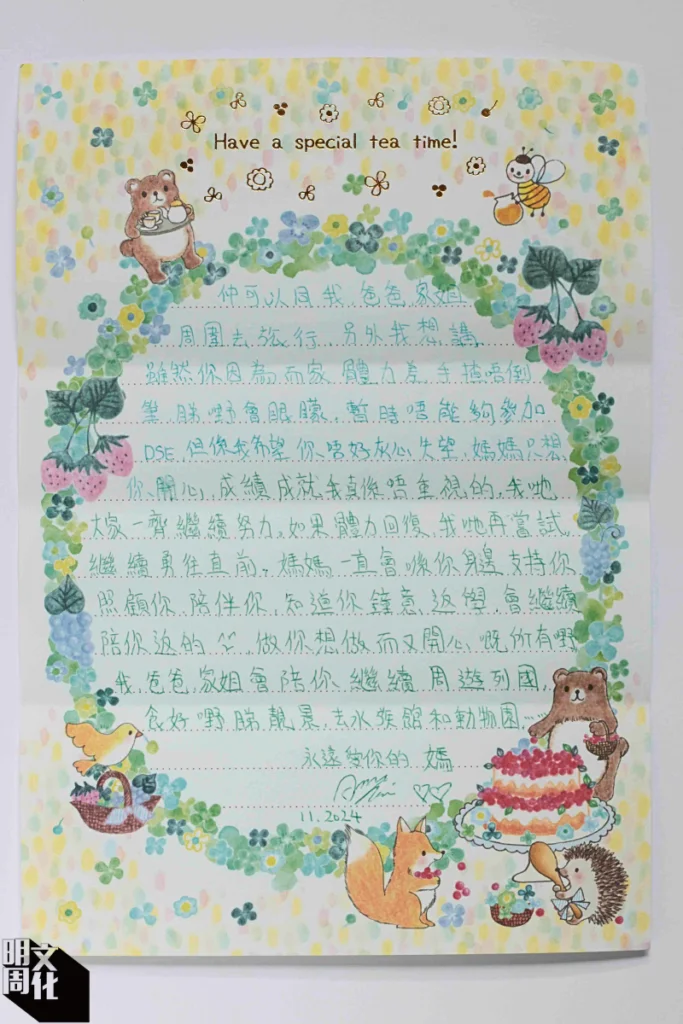 Have a special tea time!
仲可以同我,爸爸,家姐
周圍去旅行,另外我想講
雖然你因為而家體力差,手揸唔倒
筆,睇嘢會眼矇,暫時唔能夠參加
DSE,但係我希望你唔好灰心失望,媽媽只想
你開心,成績成就我真係唔重視的,我哋
大家一齊繼續努力,如果體力回復,我哋再嘗試
繼續勇往直前。媽媽一直會喺你身邊支持你
照顧你,陪伴你,知道你鍾意返學,會繼續
陪你返的,做你想做而又開心嘅所有嘢
我,爸爸,家姐會陪你繼續周遊列國,
食好嘢,睇靚景,去水族館和動物園……
永遠愛你的 媽
11.2024
明周文化